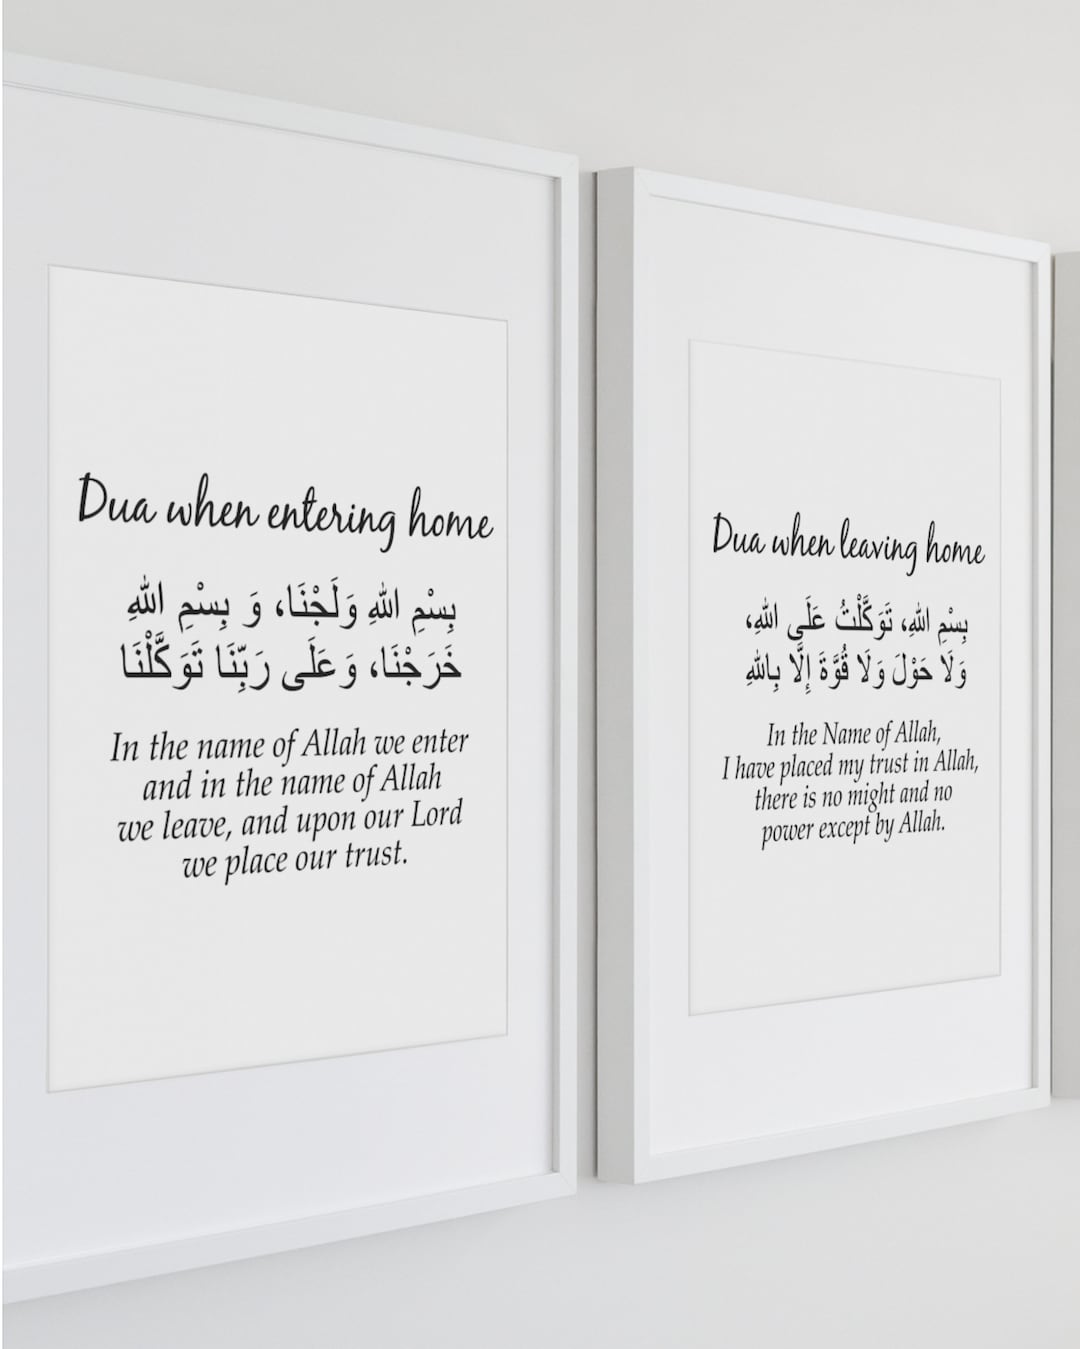 Dua when entering home
بِسْمِ اللهِ وَلَجْنَا، وَ بِسْمِ اللهِ
خَرَجْنَا، وَعَلَى رَبِّنَا تَوَكَّلْنَا
In the name of Allah we enter
and in the name of Allah
we leave, and upon our Lord
we place our trust.
Dua when leaving home
بِسْمِ اللهِ، تَوَكَّلْتُ عَلَى اللهِ،
وَلَا حَوْلَ وَلَا قُوَّةَ إِلَّا بِاللهِ
In the Name of Allah,
I have placed my trust in Allah,
there is no might and no
power except by Allah.